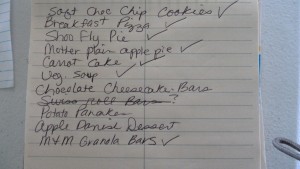 Soft Choc Chip Cookies ✓
Breakfast Pizza ✓
Shoo Fly Pie ✓
Mother plain apple pie ✓
Carrot Cake ✓
Veg Soup ✓
Chocolate Cheesecake Bars
Swiss Roll Bars ?
Potato Pancakes
Apple Danish Dessert
M&M Granola Bars ✓